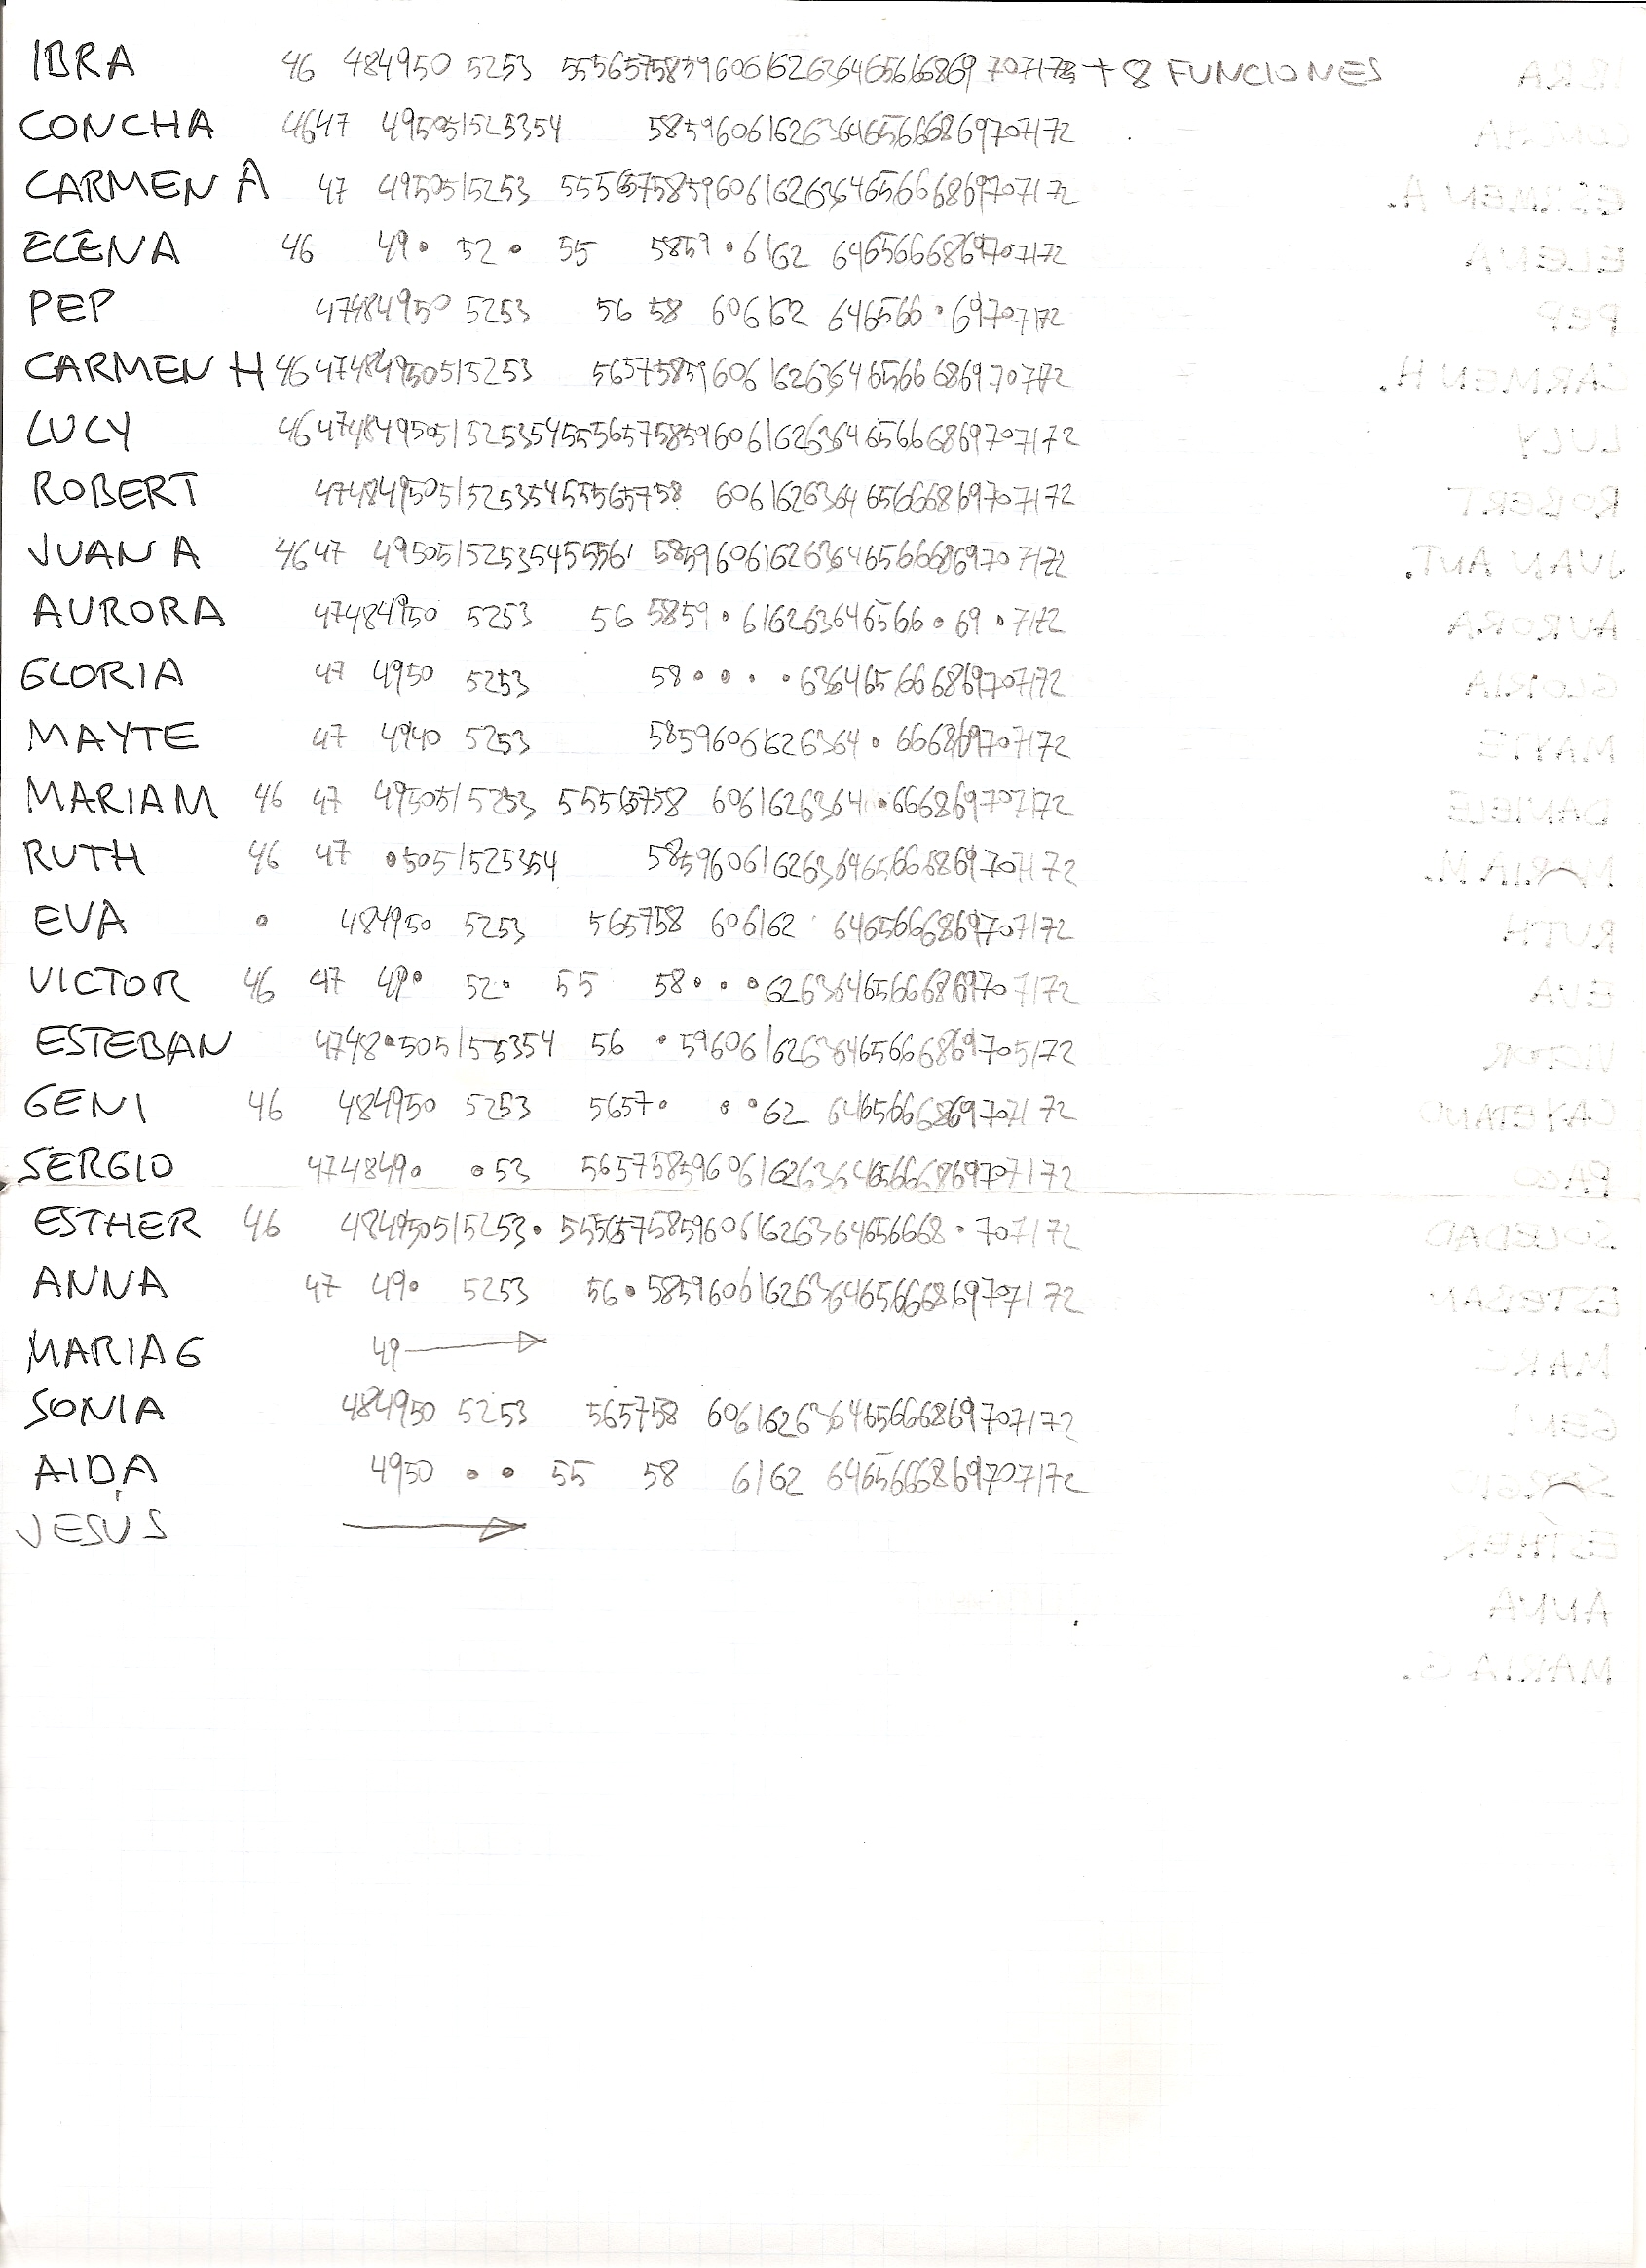 IBRA 46 484950 5253 555657585960616263646566 6869 707172 + 8 FUNCIONES
CONCHA 4647 495051525354 5859606162636465666869707172
CARMEN A 47 4950515253 5556575859606162636465666869707172
ELENA 46 49• 52• 55 5859•6162 6465666869707172
PEP 47484950 5253 56 58 606162 646566•69707172
CARMEN H 46 47484950515253 56575859606162636465666869707172
LUCY 46474849505152535455565758596061626364656668 69707172
ROBERT 474849505152535455565758 606162636465666869707172
JUAN A 4647 4950515253545556 5859606162636465666869707172
AURORA 47484950 5253 56 5859•616263646566•69•7172
GLORIA 47 4950 5253 58••••636465666869707172
MAYTE 47 4940 5253 58596061626364•666869707172
MARIAM 46 47 4950515253 55565758 6061626364•666869707172
RUTH 46 47 •5051525354 5859606162636465666869707172
EVA • 484950 5253 565758 606162 6465666869707172
VICTOR 46 47 49• 52• 55 58•••6263646566686970 7172
ESTEBAN 4748•5051555354 56 •59606162636465666869705172
GENI 46 484950 5253 5657• ••62 6465666869707172
SERGIO 474849• •53 56575859606162636465666869707172
ESTHER 46 484950515253•55565758596061626364656668•707172
ANNA 47 49• 5253 56•5859606162636465666869707172
MARIA G 49
SONIA 484950 5253 565758 606162636465666869707172
AIDA 4950 •• 55 58 6162 6465666869707172
JESUS